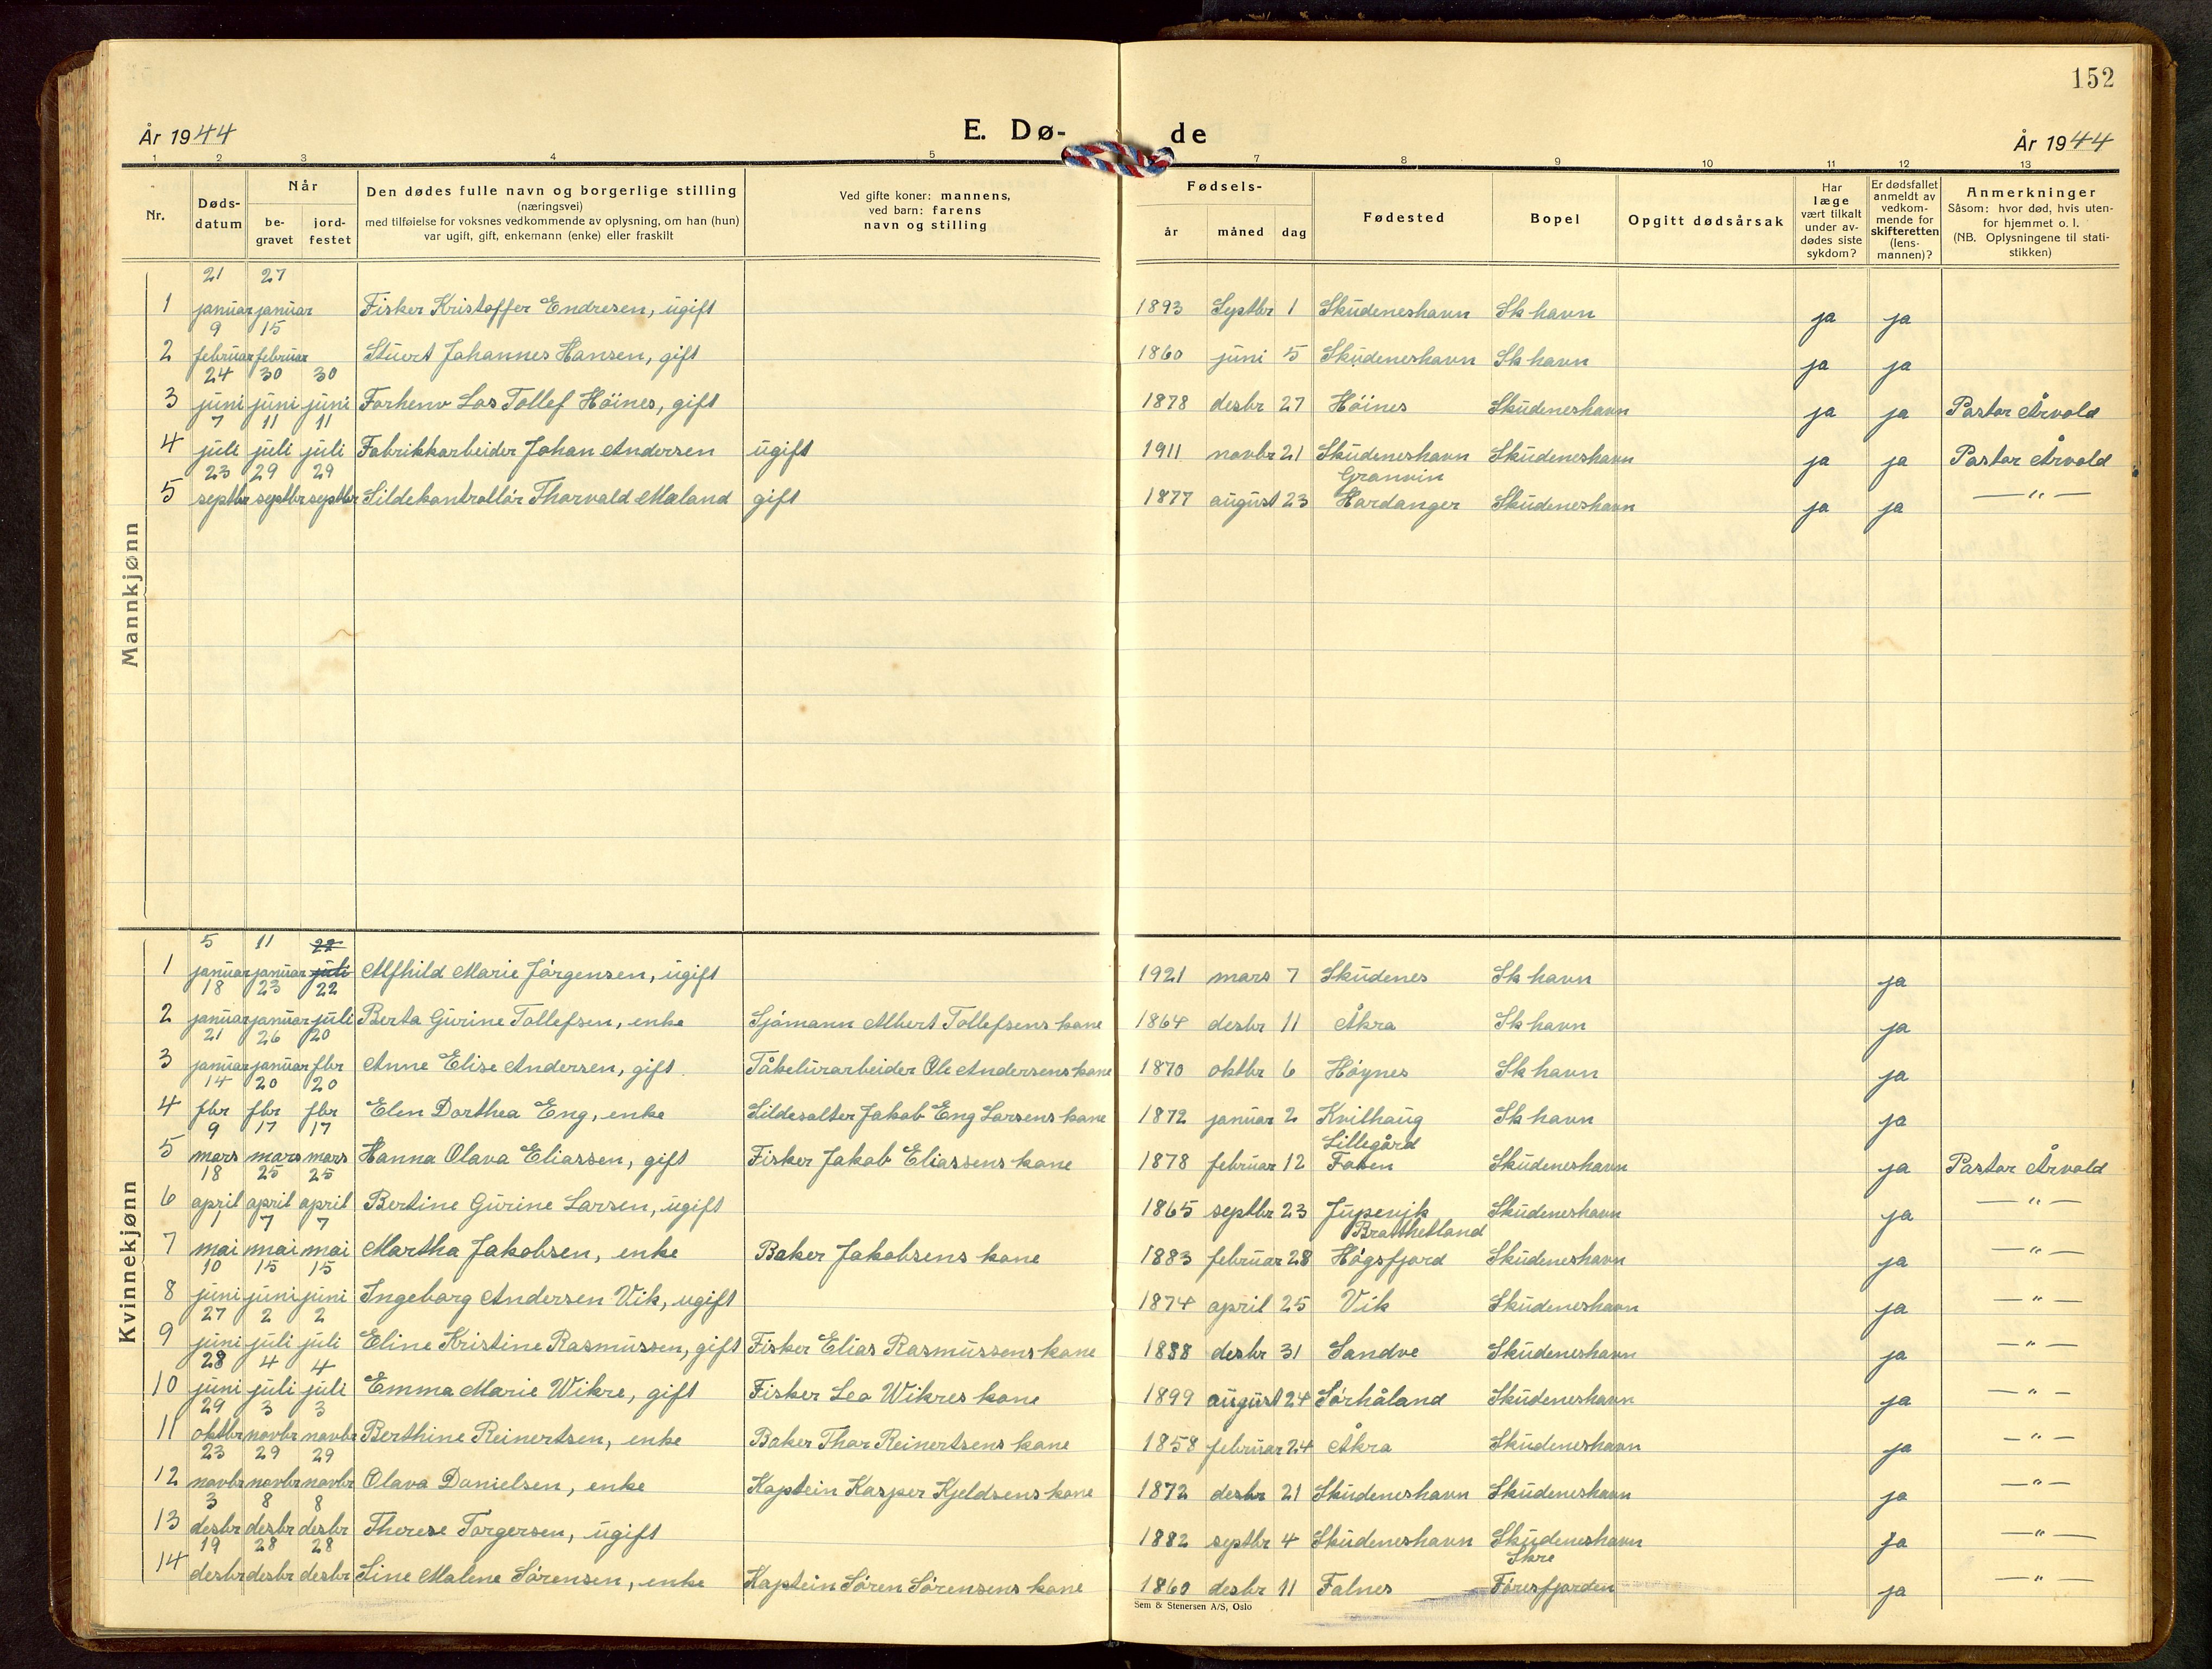 152
År 1944 E. Dø- de År 1944
1 2 3 4 5 7 8 9 10 11 12 13
Nr. Døds-datum Når be-gravet jord-festet Den dødes fulle navn og borgerlige stilling (næringsvei) med tilføielse for voksnes vedkommende av oplysning, om han (hun) var ugift, gift, enkemann (enke) eller fraskilt Ved gifte koner: mannens, ved barn: farens navn og stilling Fødsels- år måned dag Fødested Bopel Opgitt dødsårsak Har læge vært tilkalt under av-dødes siste sykdom? Er dødsfallet anmeldt av vedkom-mende for skifteretten (lens-mannen)? Anmerkninger Såsom: hvor død, hvis uten-for hjemmet o. l. (NB. Oplysningene til stati-stikken)
Mannkjønn
21 27
1 januar januar Fisker Kristoffer Endresen, ugift 1893 Septbr 1 Skudeneshavn Sk havn ja ja
9 15
2 februar februar Stuert Johannes Hansen, gift 1860 juni 5 Skudeneshavn Sk havn ja ja
24 30 30
3 juni juni juni Forhenv Los Tollef Höines, gift 1878 desbr 27 Höines Skudeneshavn ja ja Pastor Årvold
7 11 11
4 juli juli juli Fabrikkarbeider Johan Andersen ugift 1911 novbr 21 Skudeneshavn Skudeneshavn ja ja Pastor Årvold
23 29 29 Granvin
5 septbr septbr septbr Sildekontrollör Thorvald Mæland gift 1877 august 23 Hardanger Skudeneshavn ja ja — " —
Kvinnekjønn
5 11 22
1 januar januar juli Alfhild Marie Jörgensen, ugift 1921 mars 7 Skudenes Sk havn ja
18 23 22
2 januar januar juli Berta Gurine Tollefsen, enke Sjömann Albert Tollefsens kone 1864 desbr 11 Åkra Sk havn ja
21 26 20
3 januar januar fbr Anne Elise Andersen, gift. Tåkelurarbeider Ole Andersens kone 1870 oktbr 6 Höynes Sk havn ja
14 20 20
4 fbr fbr fbr Elen Dorthea Eng, enke Sildesalter Jakob Eng Larsens kone 1872 januar 2 Kvilhaug Sk havn ja
9 17 17 Lillegård
5 mars mars mars Hanna Olava Eliassen, gift Fisker Jakob Eliassens kone 1878 februar 12 Foten Skudeneshavn ja Pastor Årvold
18 25 25
6 april april april Bertine Gurine Larsen, ugift 1865 septbr 23 Jupevik Skudeneshavn ja — " —
1 7 7 Bratthetland
7 mai mai mai Martha Jakobsen, enke Baker Jakobsens kone 1883 februar 28 Högsfjord Skudeneshavn ja — " —
10 15 15
8 juni juni juni Ingeborg Andersen Vik, ugift 1874 april 25 Vik Skudeneshavn ja — " —
27 2 2
9 juni juli juli Eline Kristine Rasmussen, gift Fisker Elias Rasmussens kone 1888 desbr 31 Sandve Skudeneshavn ja — " —
28 4 4
10 juni juli juli Emma Marie Wikre, gift Fisker Leo Wikres kone 1899 august 24 Sörhåland Skudeneshavn ja — " —
29 3 3
11 oktbr novbr novbr Berthine Reinertsen, enke Baker Thor Reinertsens kone 1858 februar 24 Åkra Skudeneshavn ja — " —
23 29 29
12 novbr novbr novbr Olava Danielsen, enke Kaptein Kasper Kjeldsens kone 1872 desbr 21 Skudeneshavn Skudeneshavn ja — " —
3 8 8
13 desbr desbr desbr Therese Torgersen, ugift 1882 septbr 4 Skudeneshavn Skudeneshavn ja — " —
19 28 28 Skre
14 desbr desbr desbr Line Malene Sörensen, enke Kaptein Sören Sörensens kone 1860 desbr 11 Falnes Föresfjorden ja — " —
Sem & Stenersen A/S, Oslo